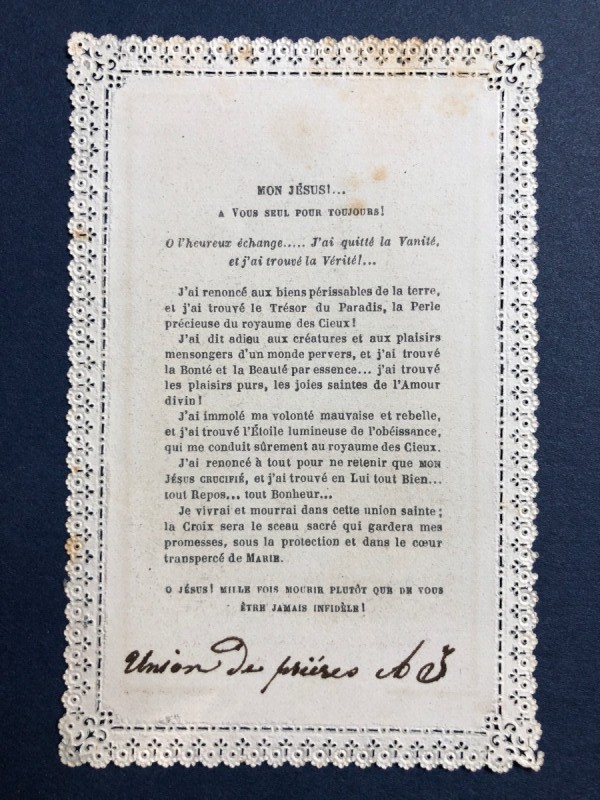 MON JÉSUS!...
A VOUS SEUL POUR TOUJOURS!
O l'heureux échange..... J'ai quitté la Vanité,
et j'ai trouvé la Vérité!...
J'ai renoncé aux biens périssables de la terre,
et j'ai trouvé le Trésor du Paradis, la Perle
précieuse du royaume des Cieux!
J'ai dit adieu aux créatures et aux plaisirs
mensongers d'un monde pervers, et j'ai trouvé
la Bonté et la Beauté par essence... j'ai trouvé
les plaisirs purs, les joies saintes de l'Amour
divin!
J'ai immolé ma volonté mauvaise et rebelle,
et j'ai trouvé l'Étoile lumineuse de l'obéissance,
qui me conduit sûrement au royaume des Cieux.
J'ai renoncé à tout pour ne retenir que MON
JÉSUS CRUCIFIÉ, et j'ai trouvé en Lui tout Bien...
tout Repos... tout Bonheur...
Je vivrai et mourrai dans cette union sainte;
la Croix sera le sceau sacré qui gardera mes
promesses, sous la protection et dans le cœur
transpercé de MARIE.
O JÉSUS! MILLE FOIS MOURIR PLUTÔT QUE DE VOUS
ÊTRE JAMAIS INFIDÈLE!
Union de prières A J